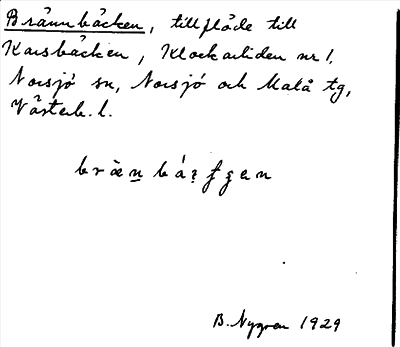 Brännbäcken, tillflöde till
Korsbäcken, Klockarliden nr 1,
Norsjö sn, Norsjö och Malå tg,
Västerb. l.
B. Nygren 1929